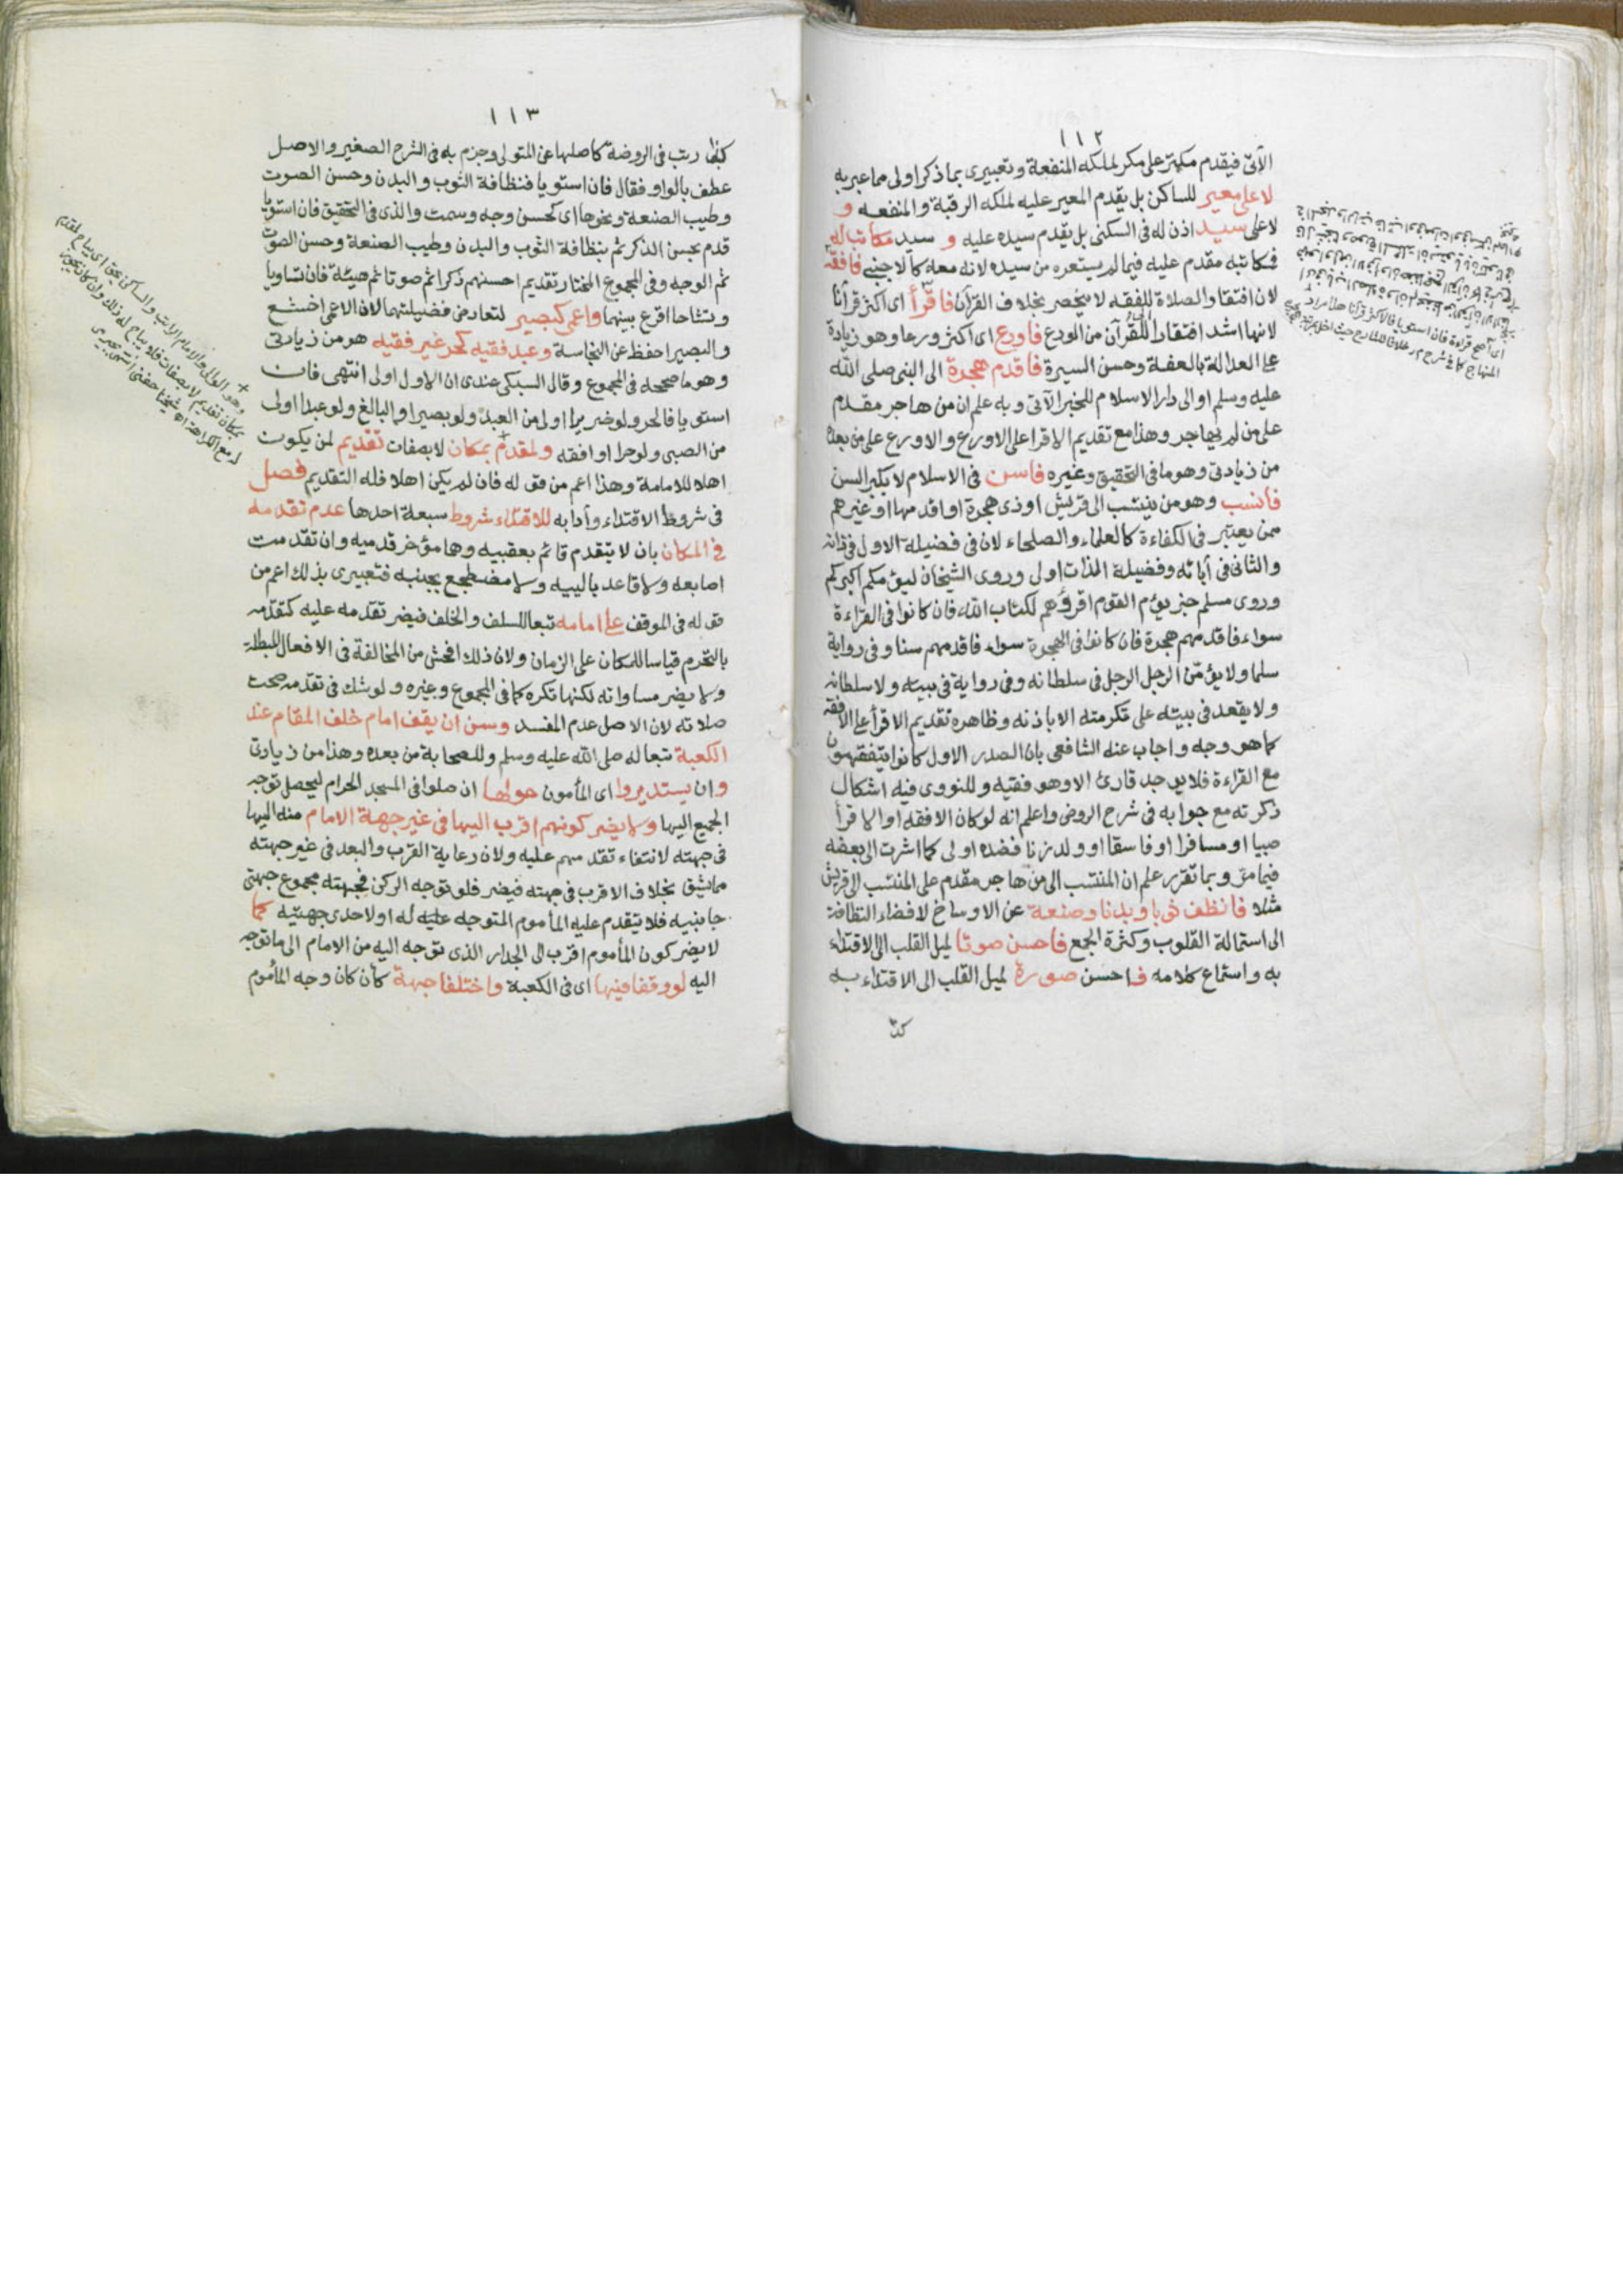 ١١٢
الآتى فيقدم مكتر على مكر لملكه المنفعة وتعبيرى بما ذكر اولى مما عبر به
لا على معير للساكن بل يقدم المعير عليه لملكه الرقبة والمنفعه و
لا على سيد اذن له فى السكنى بل يقدم سيده عليه و سيد مكاتب له
فمكاتبه مقدم عليه فيما لم يستعره من سيده لانه معه كالاجنبي فافقه
لان افتقار الصلاة للفقه لا ينحصر بخلاف القرآن فاقرأ اى اكثر قرآنا
لانها اشد افتقارا للقرآن من الورع فاورع اى اكثر ورعا وهو زيادة
على العدالة بالعفة وحسن السيرة فاقدم هجرة الى النبى صلى الله
عليه وسلم او الى دار الاسلام للخبر الآتى وبه علم ان من هاجر مقدم
على من لم يهاجر وهذا مع تقديم الاقرا على الاورع والاورع على من بعده
من زيادتى وهو ما فى التحقيق وغيره فاسن فى الاسلام لا بكبر السن
فانسب وهو من ينتسب الى قريش او ذى هجرة او اقدمها او غيرهم
ممن يعتبر فى الكفاءة كالعلماء والصلحاء لان فى فضيلة الاول فى ذاته
والثانى فى آبائه وفضيلة الذات اولى وروى الشيخان ليؤمكم اكبركم
وروى مسلم خبر يؤم القوم اقرؤهم لكتاب الله فان كانوا فى القراءة
سواء فاقدمهم هجرة فان كانوا فى الهجرة سواء فاقدمهم سنا وفى رواية
سلما ولا يؤمّن الرجل الرجل فى سلطانه وفى رواية فى بيته ولا سلطانه
ولا يقعد فى بيته على تكرمته الا باذنه وظاهره تقديم الاقرأ على الافقه
كما هو وجه واجاب عنه الشافعى بان الصدر الاول كانوا يتفقهون
مع القراءة فلا يوجد قارئ الا وهو فقيه وللنووى فيه اشكال
ذكرته مع جوابه فى شرح الروض واعلم انه لو كان الافقه او الاقرأ
صبيا او مسافرا او فاسقا او ولد زنا فضده اولى كما اشرت الى بعضه
فيما مرّ وبما تقرر علم ان المنتسب الى من هاجر مقدم على المنتسب الى قريش
مثلا فانظف ثوبا وبدنا وصنعة عن الاوساخ لافضاء النظافة
الى استمالة القلوب وكثرة الجمع فاحسن صوتا لميل القلب الى الاقتداء
به واستماع كلامه فاحسن صورة لميل القلب الى الاقتداء به
١١٣
كذا رتب فى الروضة كاصلها عن المتولى وجزم به فى الشرح الصغير والاصل
عطف بالواو فقال فان استويا فنظافة الثوب والبدن وحسن الصوت
وطيب الصنعة ونحوها اى كحسن وجه وسمت والذى فى التحقيق فان استويا
قدم بحسن الذكر ثم بنظافة الثوب والبدن وطيب الصنعة وحسن الصوت
ثم الوجه وفى المجموع المختار تقديم احسنهم ذكرا ثم صوتا ثم هيئة فان تساويا
وتشاحا اقرع بينهما واعمى كبصير لتعارض فضيلتهما لان الاعمى اخشع
والبصير احفظ عن النجاسة وعبد فقيه كحر غير فقيه هو من زيادتى
وهو ما صححه فى المجموع وقال السبكى عندى ان الاول اولى انتهى فان
استويا فالحر ولو ضريرا اولى من العبد ولو بصيرا والبالغ ولو عبدا اولى
من الصبى ولو حرا او افقه ولمقدم بمكان لا بصفات تقديم لمن يكون
اهلا للامامة وهذا اعم من قوله فان لم يكن اهلا فله التقديم فصل
فى شروط الاقتداء وآدابه للاقتداء شروط سبعة احدها عدم تقدمه
فى المكان بان لا يتقدم قائم بعقبيه وهما مؤخر قدميه وان تقدمت
اصابعه ولا قاعد باليبه ولا مضطجع بجنبه فتعبيرى بذلك اعم من
قوله فى الموقف على امامه تبعا للسلف والخلف فيضر تقدمه عليه كتقدمه
بالتحرم قياسا للمكان على الزمان ولان ذلك افحش من المخالفة فى الافعال المبطلة
ولا يضر مساواته لكنها تكره كما فى المجموع وغيره ولو شك فى تقدمه صحت
صلاته لان الاصل عدم المفسد وسن ان يقف امام خلف المقام عند
الكعبة تبعا له صلى الله عليه وسلم وللصحابة من بعده وهذا من زيادتى
وان يستديروا اى المأمون حولها ان صلوا فى المسجد الحرام ليحصل توجه
الجميع اليها ولا يضر كونهم اقرب اليها فى غير جهة الامام منه اليها
فى جهته لانتفاء تقدمهم عليه ولان رعاية القرب والبعد فى غير جهته
مما يشق بخلاف الاقرب فى جهته فيضر فلو توجه الركن فجهته مجموع جهتى
جانبيه فلا يتقدم عليه المأموم المتوجه عليه له او لاحدى جهتيه كما
لا يضر كون المأموم اقرب الى الجدار الذى توجه اليه من الامام الى ما توجه
اليه لو وقفا فيها اى فى الكعبة واختلفا جهة كأن كان وجه المأموم